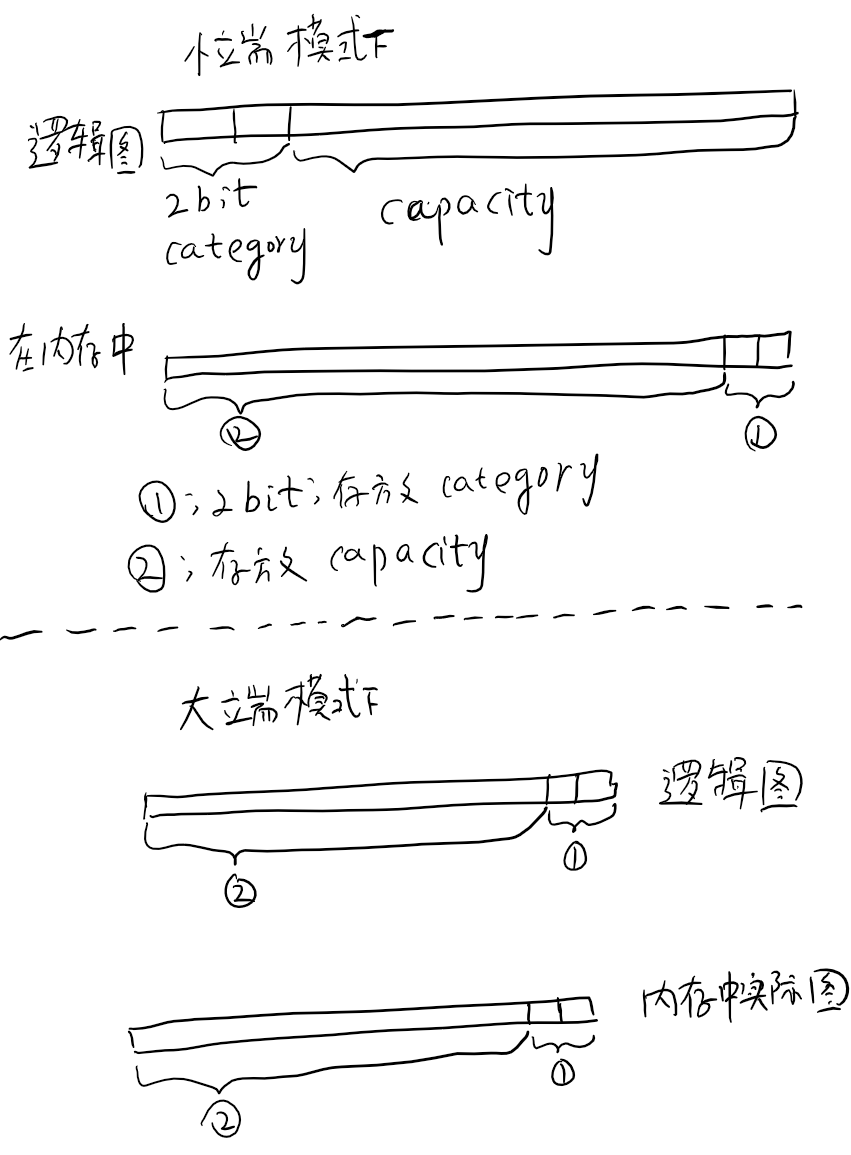 小位端模式下
逻辑图
2bit
category
capacity
在内存中
②
①
①;2bit;存放category
②;存放capacity
大立端模式下
逻辑图
②
①
内存中实际图
②
①